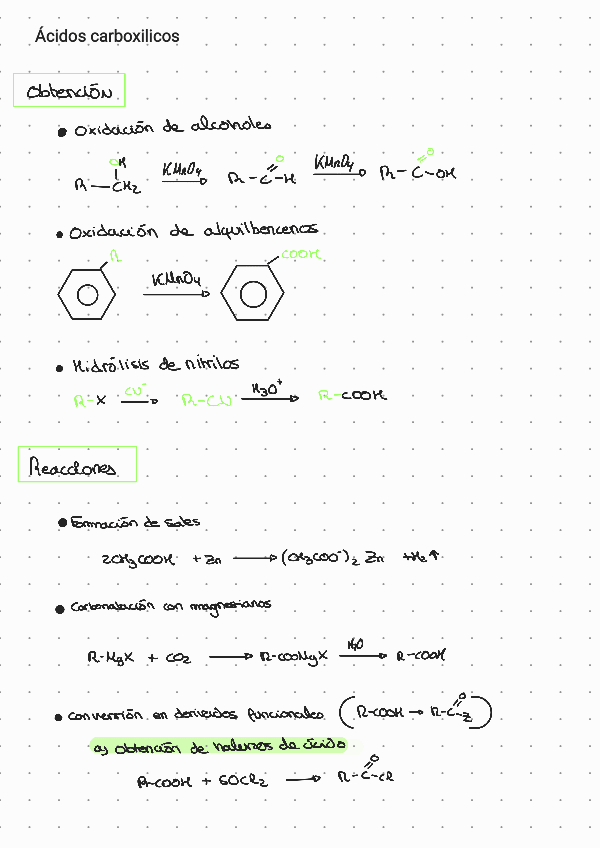 Ácidos carboxilicos
Obtención
• Oxidación de alcoholes
OH
R-CH2 KMnO4 R-C-H KMnO4 R-C-OH
O O
• Oxidación de alquilbencenos
R KMnO4 COOH
• Hidrólisis de nitrilos
R-X CN⁻ R-CN H3O⁺ R-COOH
Reacciones
• Formación de sales
2CH3COOH + Zn → (CH3COO⁻)2 Zn +H2↑
• Carbonatación con magnesianos
R-MgX + CO2 → R-COOMgX H2O → R-COOH
• Conversión en derivados funcionales (R-COOH → R-C-Z)
O
a) Obtención de halenros de ácido
R-COOH + SOCl2 → R-C-Cl
O